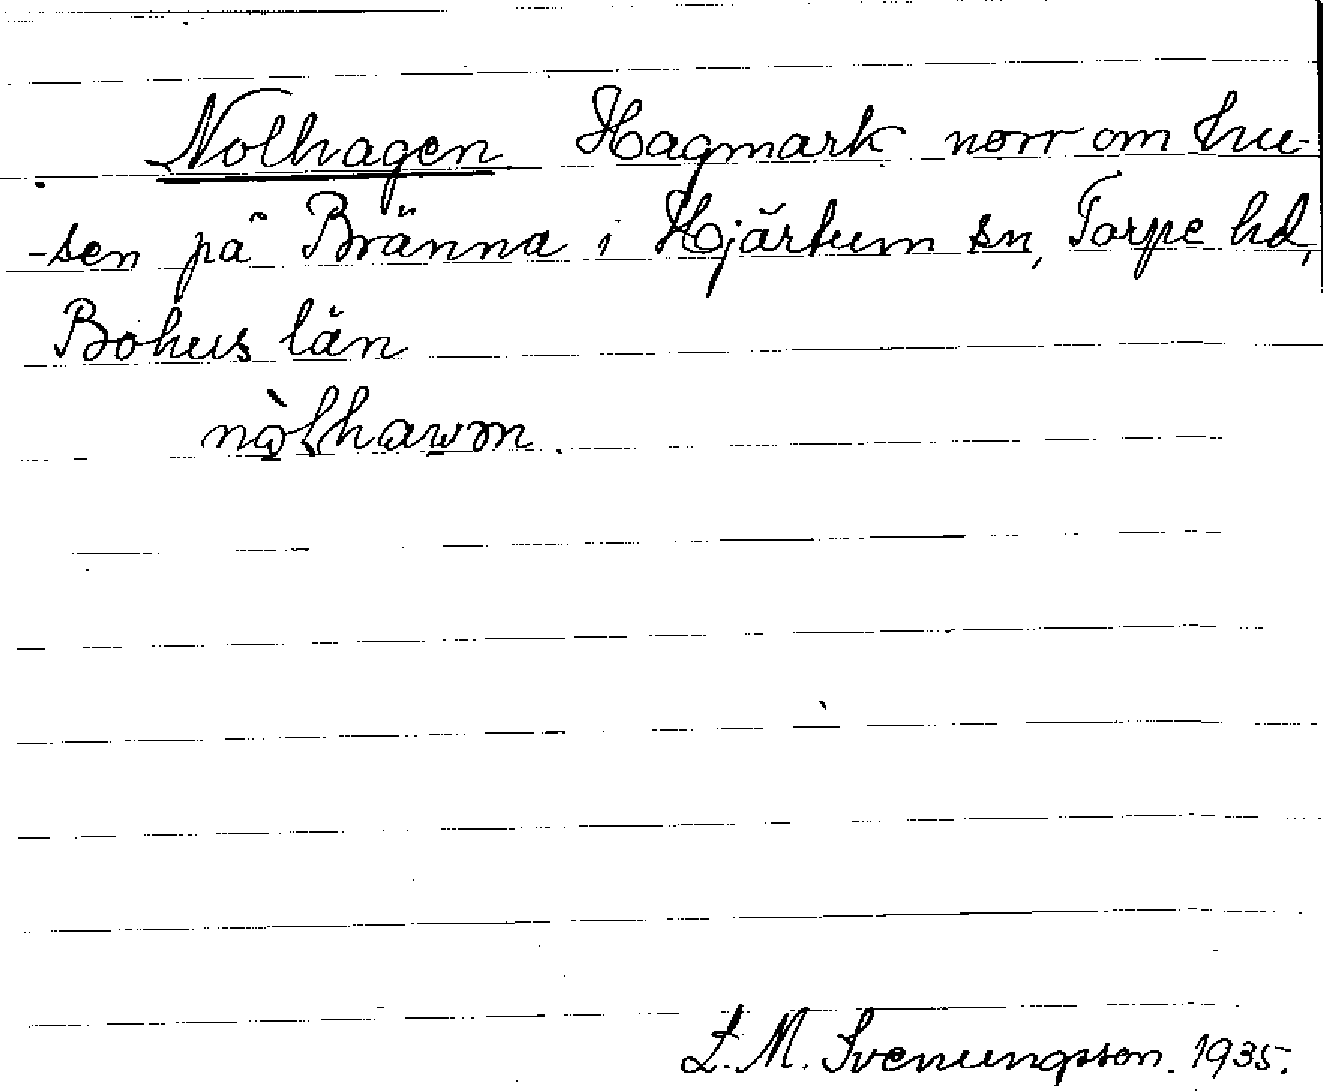 Nolhagen Hagmark norr om hu-
-sen på Bränna i Hjärtum sn, Torpe hd,
Bohus län
nò̤lhawən.
L. M. Svenungsson. 1935.